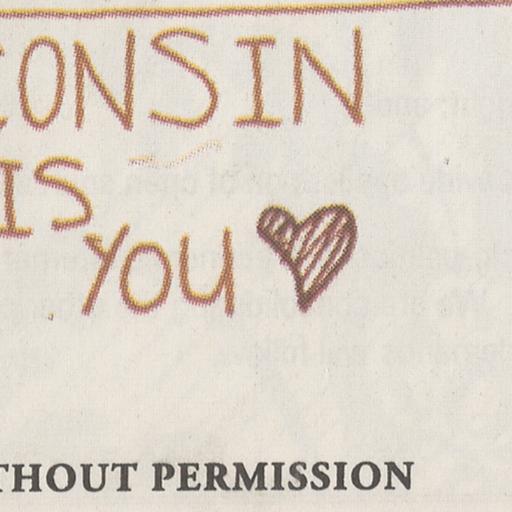 CONSIN
IS
YOU
THOUT PERMISSION